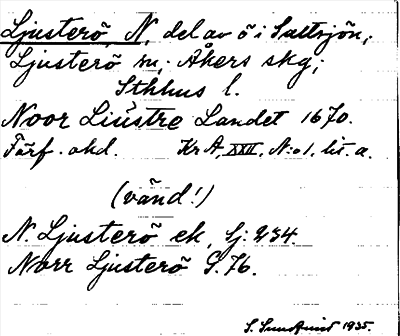 Ljusterö, N, del av ö i Saltsjön;
Ljusterö sn; Åkers skg;
Sthlms l.
Noor Liüstre Landet 1670.
Förf. okd. Kr A, XXII, N:o 1, lit. a.
(vänd!)
N. Ljusterö ek, Sj: 234.
Norr Ljusterö G. 76.
S. Sundqvist 1935.